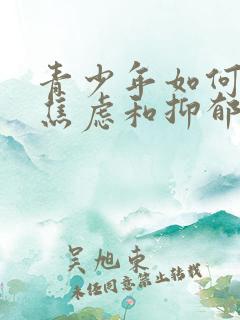 青少年如何
焦虑和抑郁
吴旭东
未经同意禁止转载